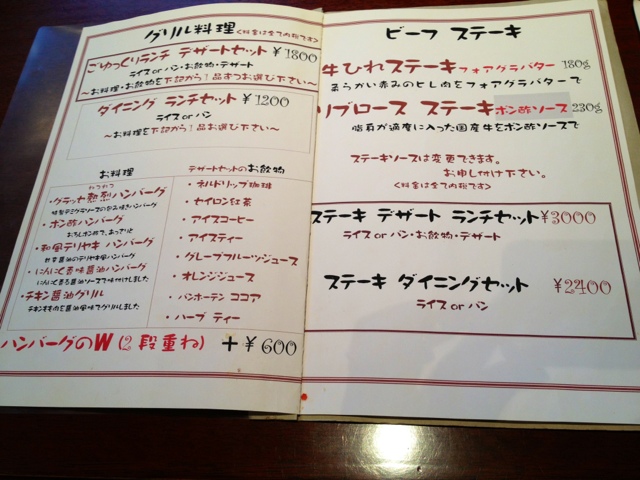 グリル料理 <料金は全て内税です>
ごゆっくりランチ デザートセット ¥1800
ライス or パン・お飲物・デザート
～お料理・お飲物を下記から1品ずつお選び下さい～
ダイニング ランチセット ¥1200
ライス or パン
～お料理を下記から1品お選び下さい～
お料理
・グラッセ熱烈ハンバーグ
・ポン酢ハンバーグ
おろしポン酢で、あっさりと
・和風テリヤキ ハンバーグ
・にんにく香味醤油ハンバーグ
・チキン醤油グリル
デザートセットのお飲物
・ネルドリップ珈琲
・セイロン紅茶
・アイスコーヒー
・アイスティー
・グレープフルーツジュース
・オレンジジュース
・バンホーテン ココア
・ハーブ ティー
ハンバーグのW (2段重ね) + ¥600
ビーフ ステーキ
牛ひれステーキフォアグラバター 180g
柔らかい赤みのヒレ肉をフォアグラバターで
リブロース ステーキポン酢ソース 230g
脂肪が適度に入った国産牛をポン酢ソースで
ステーキソースは変更できます。
お申し付け下さい。
<料金は全て内税です>
ステーキ デザート ランチセット ¥3000
ライス or パン・お飲物・デザート
ステーキ ダイニングセット ¥2400
ライス or パン